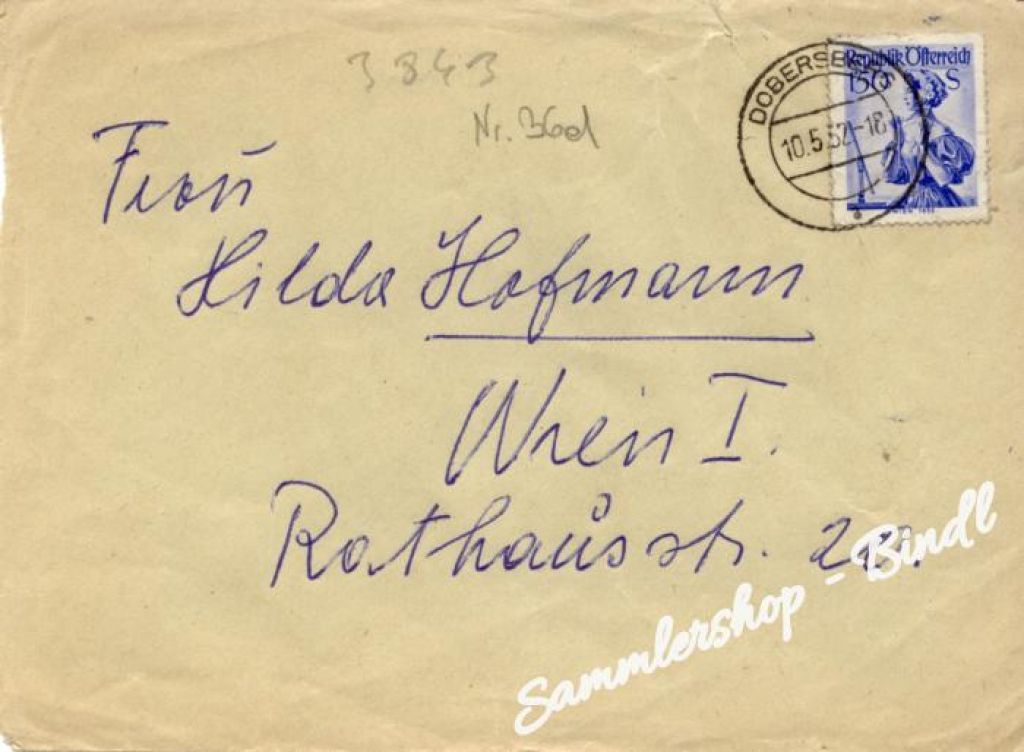 3843
Nr. 36d
DOBERSBERG
10.5.52-18
Republik Österreich
150 S
WIEN
Frau
Hilda Hofmann
Wien I.
Rathausstr.
Sammlershop - Bindl